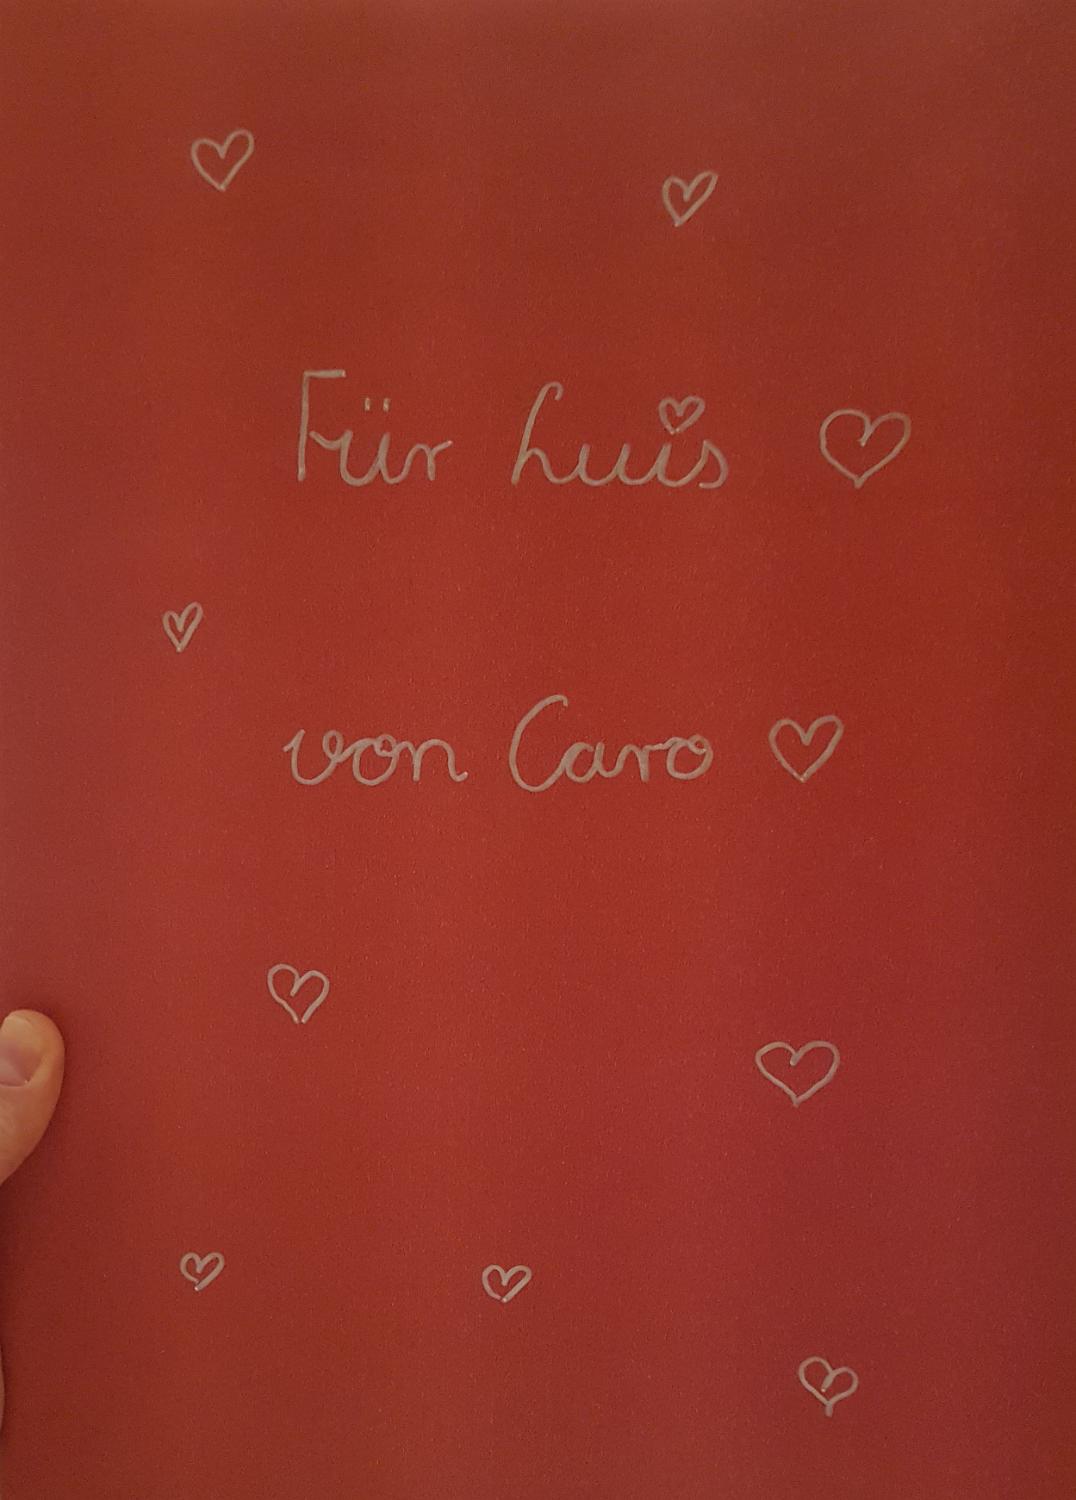 Für Luis ♡
von Caro ♡